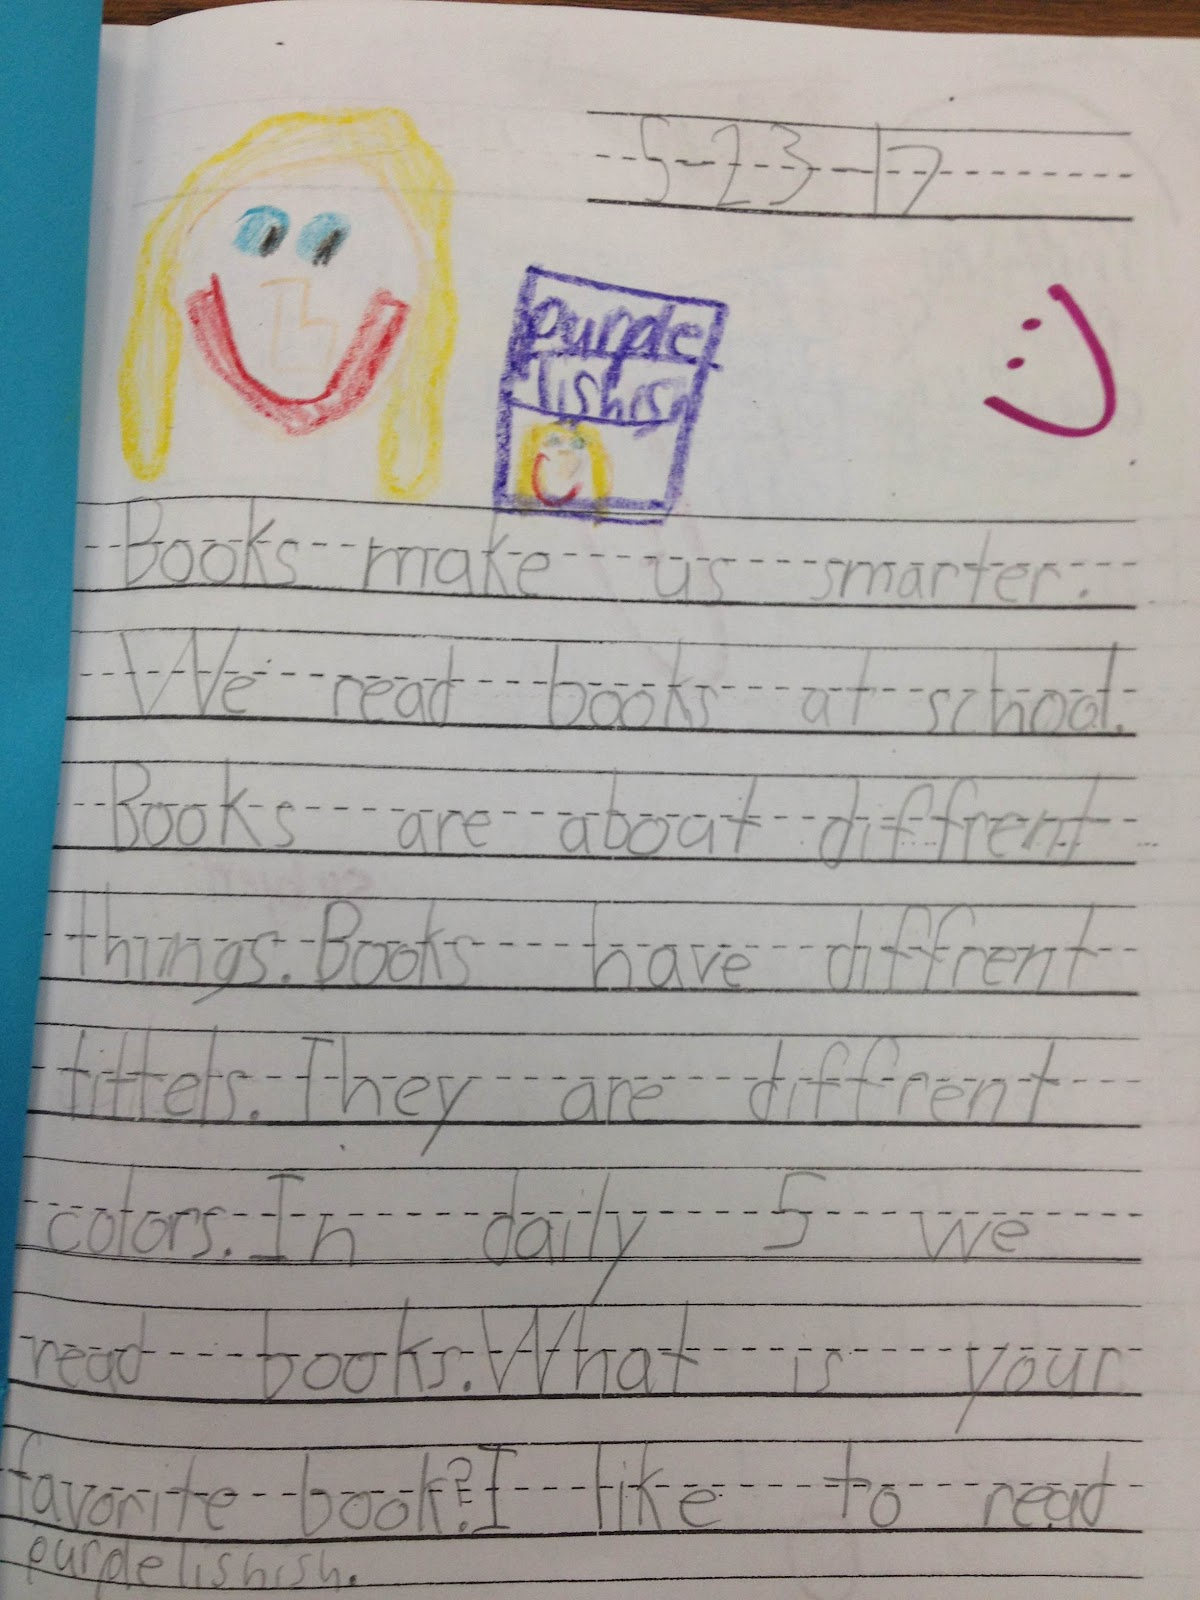 5-23-17
purple
lishish
Books make us smarter.
We read books at school.
Books are about diffrent
things. Books have diffrent
tittels. They are diffrent
colors. In daily 5 we
read books. What is your
favorite book? I like to read
purple lishish.